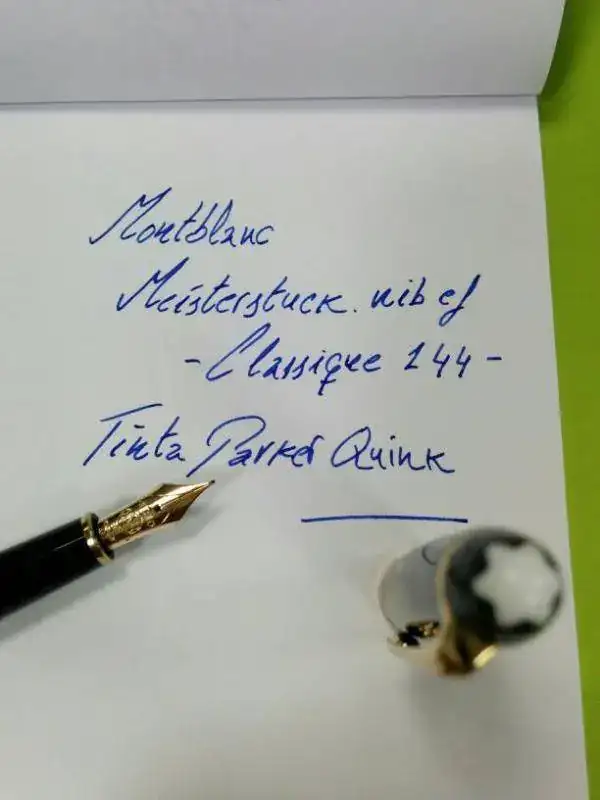 Montblanc
Meisterstuck. nib ef
- Classique 144 -
Tinta Parker Quink